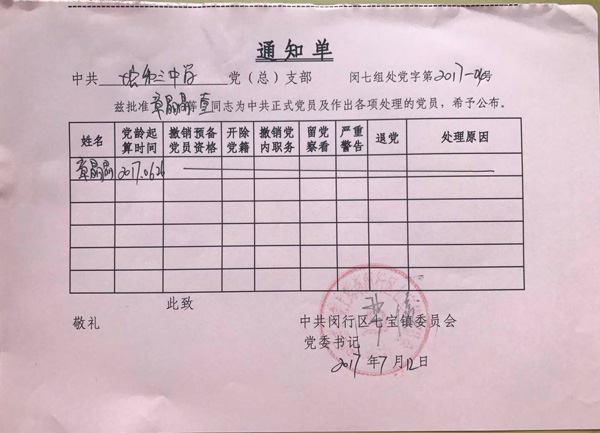 通知单
中共 三中学 党（总）支部 闵七组处党字第2017-号
兹批准章晶晶等壹同志为中共正式党员及作出各项处理的党员，希予公布。
姓名 党龄起算时间 撤销预备党员资格 开除党籍 撤销党内职务 留党察看 严重警告 退党 处理原因
章晶晶 2017.06.26
此致
敬礼
中共闵行区七宝镇委员会
党委书记
2017年7月12日